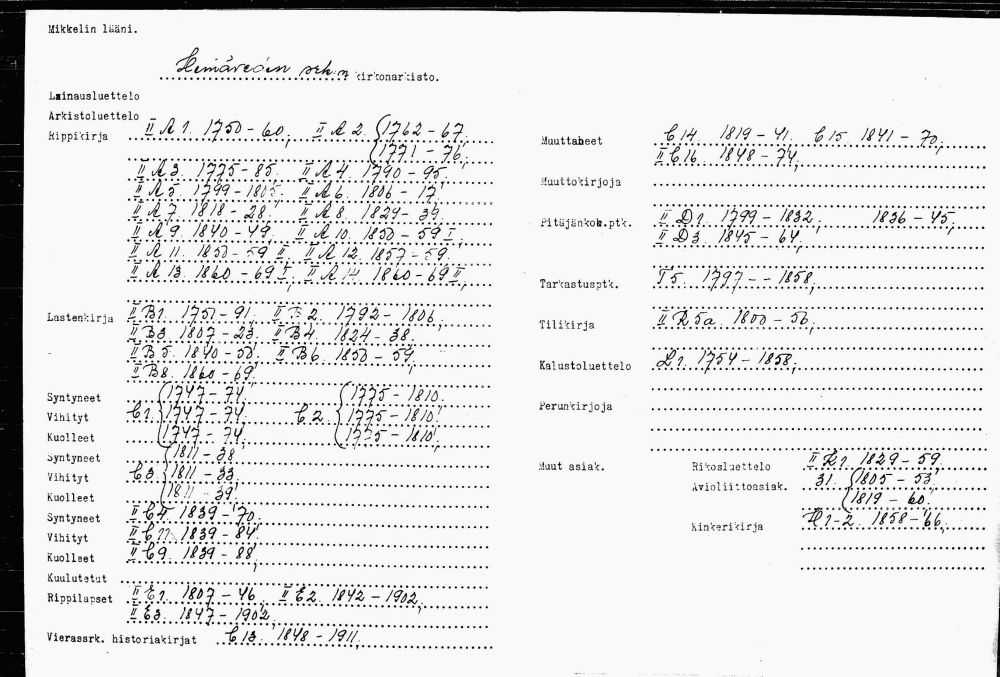 Mikkelin lääni.
Heinäveden srk:n kirkonarkisto.
Lainausluettelo
Arkistoluettelo
Rippikirja II A 1. 1750-60, II A 2. 1762-67,
1771-76,
II A 3. 1775-85, II A 4. 1790-95.
II A 5. 1799-1805. II A 6. 1806-17
II A 7. 1818-28. II A 8. 1829-39.
II A 9. 1840-49, II A 10. 1850-59 I,
II A 11. 1850-59 II, II A 12. 1857-59.
II A 13. 1860-69 I, II A 14. 1860-69 II,
Lastenkirja II B1. 1751-91, II B 2. 1792-1806,
II B3. 1807-23. II B4. 1824-38.
II B 5. 1840-50, II B6. 1850-59,
II B8. 1860-69,
Syntyneet 1747-74. 1775-1810.
Vihityt C1. 1747-74. C 2. 1775-1810,
Kuolleet 1747-74, 1775-1810,
Syntyneet 1811-38
Vihityt C3. 1811-33.
Kuolleet 1811-39,
Syntyneet II C4. 1839-70.
Vihityt 1839-84,
Kuolleet II C9. 1839-88,
Kuulutetut
Rippilapset II E1. 1807-46, II E2. 1842-1902,
II E3. 1847-1902,
Vierassrk. historiakirjat C 13. 1848-1911,
Muuttaneet C 14. 1819-41. C 15. 1841-70,
II C 16. 1848-74,
Muuttokirjoja
Pitäjänkok.ptk. II D1. 1799-1832, 1836-45,
II D3. 1845-64,
Tarkastusptk. 1797--1858,
Tilikirja 1800-56,
Kalustoluettelo L1. 1754-1858,
Perunkirjoja
Muut asiak. Rikosluettelo 1829-59.
Avioliittoasiak. 31. 1805-53,
1819-60,
Kinkerikirja 1-2. 1858-66,